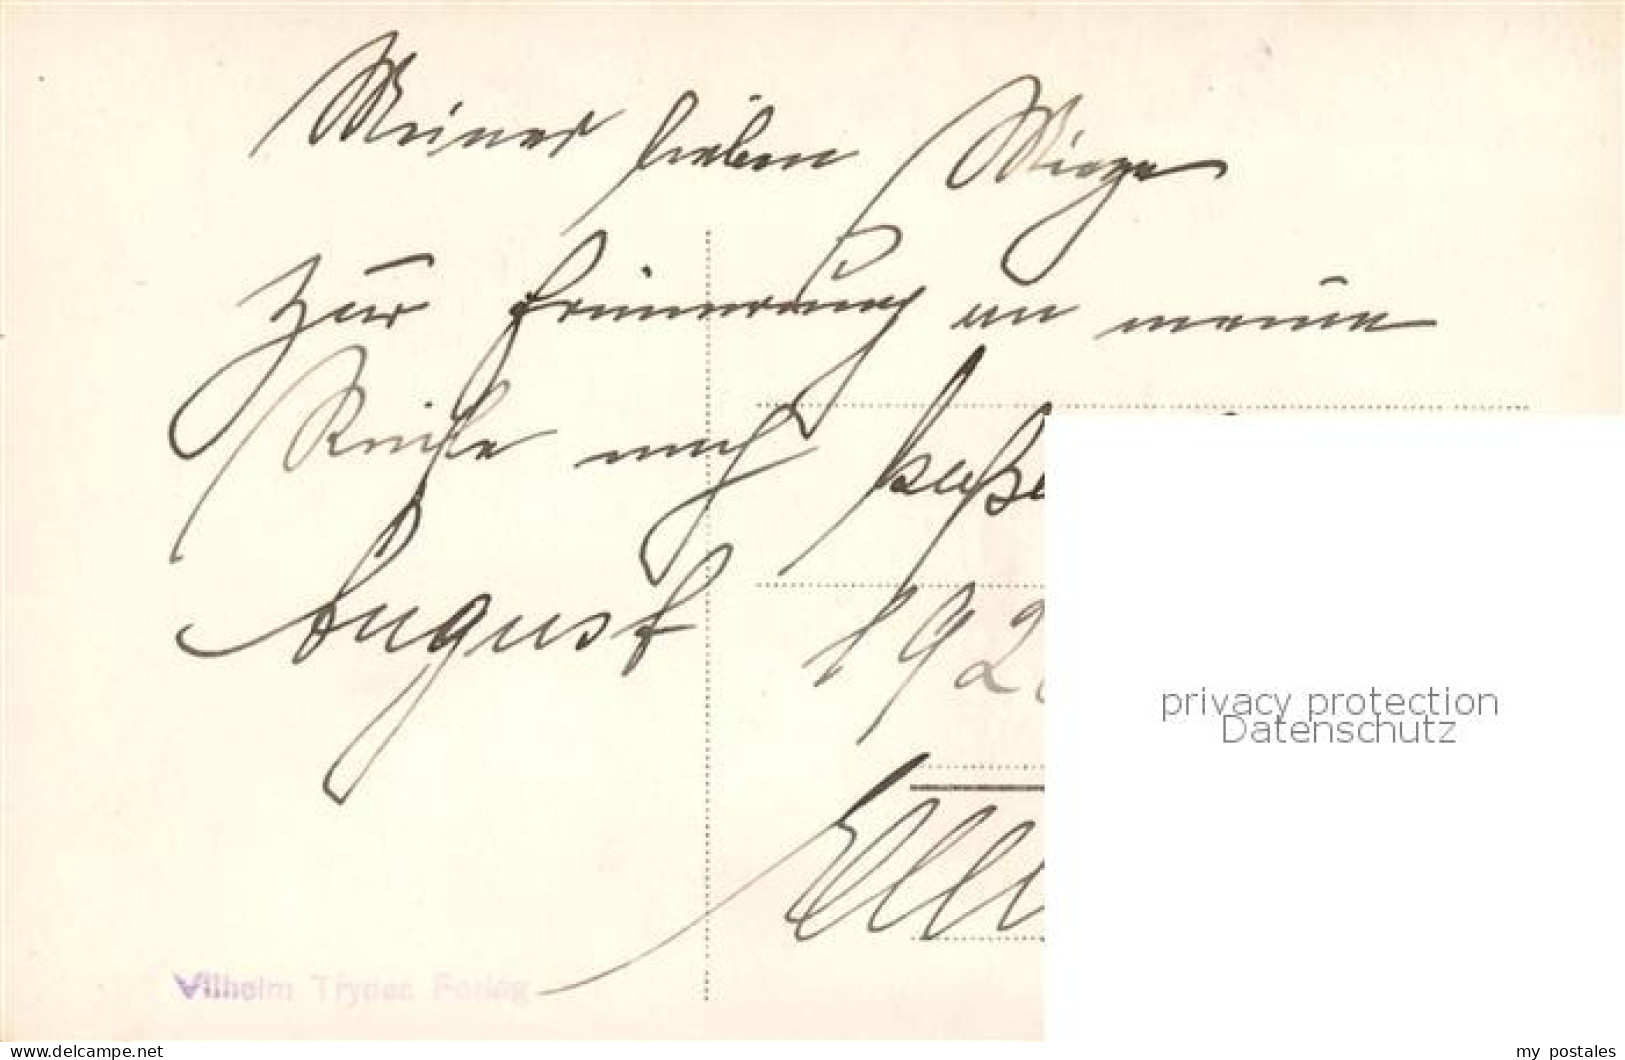 Meiner lieben Miezge
Zur Erinnerung an meine
Reise nach
August 192
Vilhelm Trydes Forlag
privacy protection
Datenschutz
www.delcampe.net
my_postales